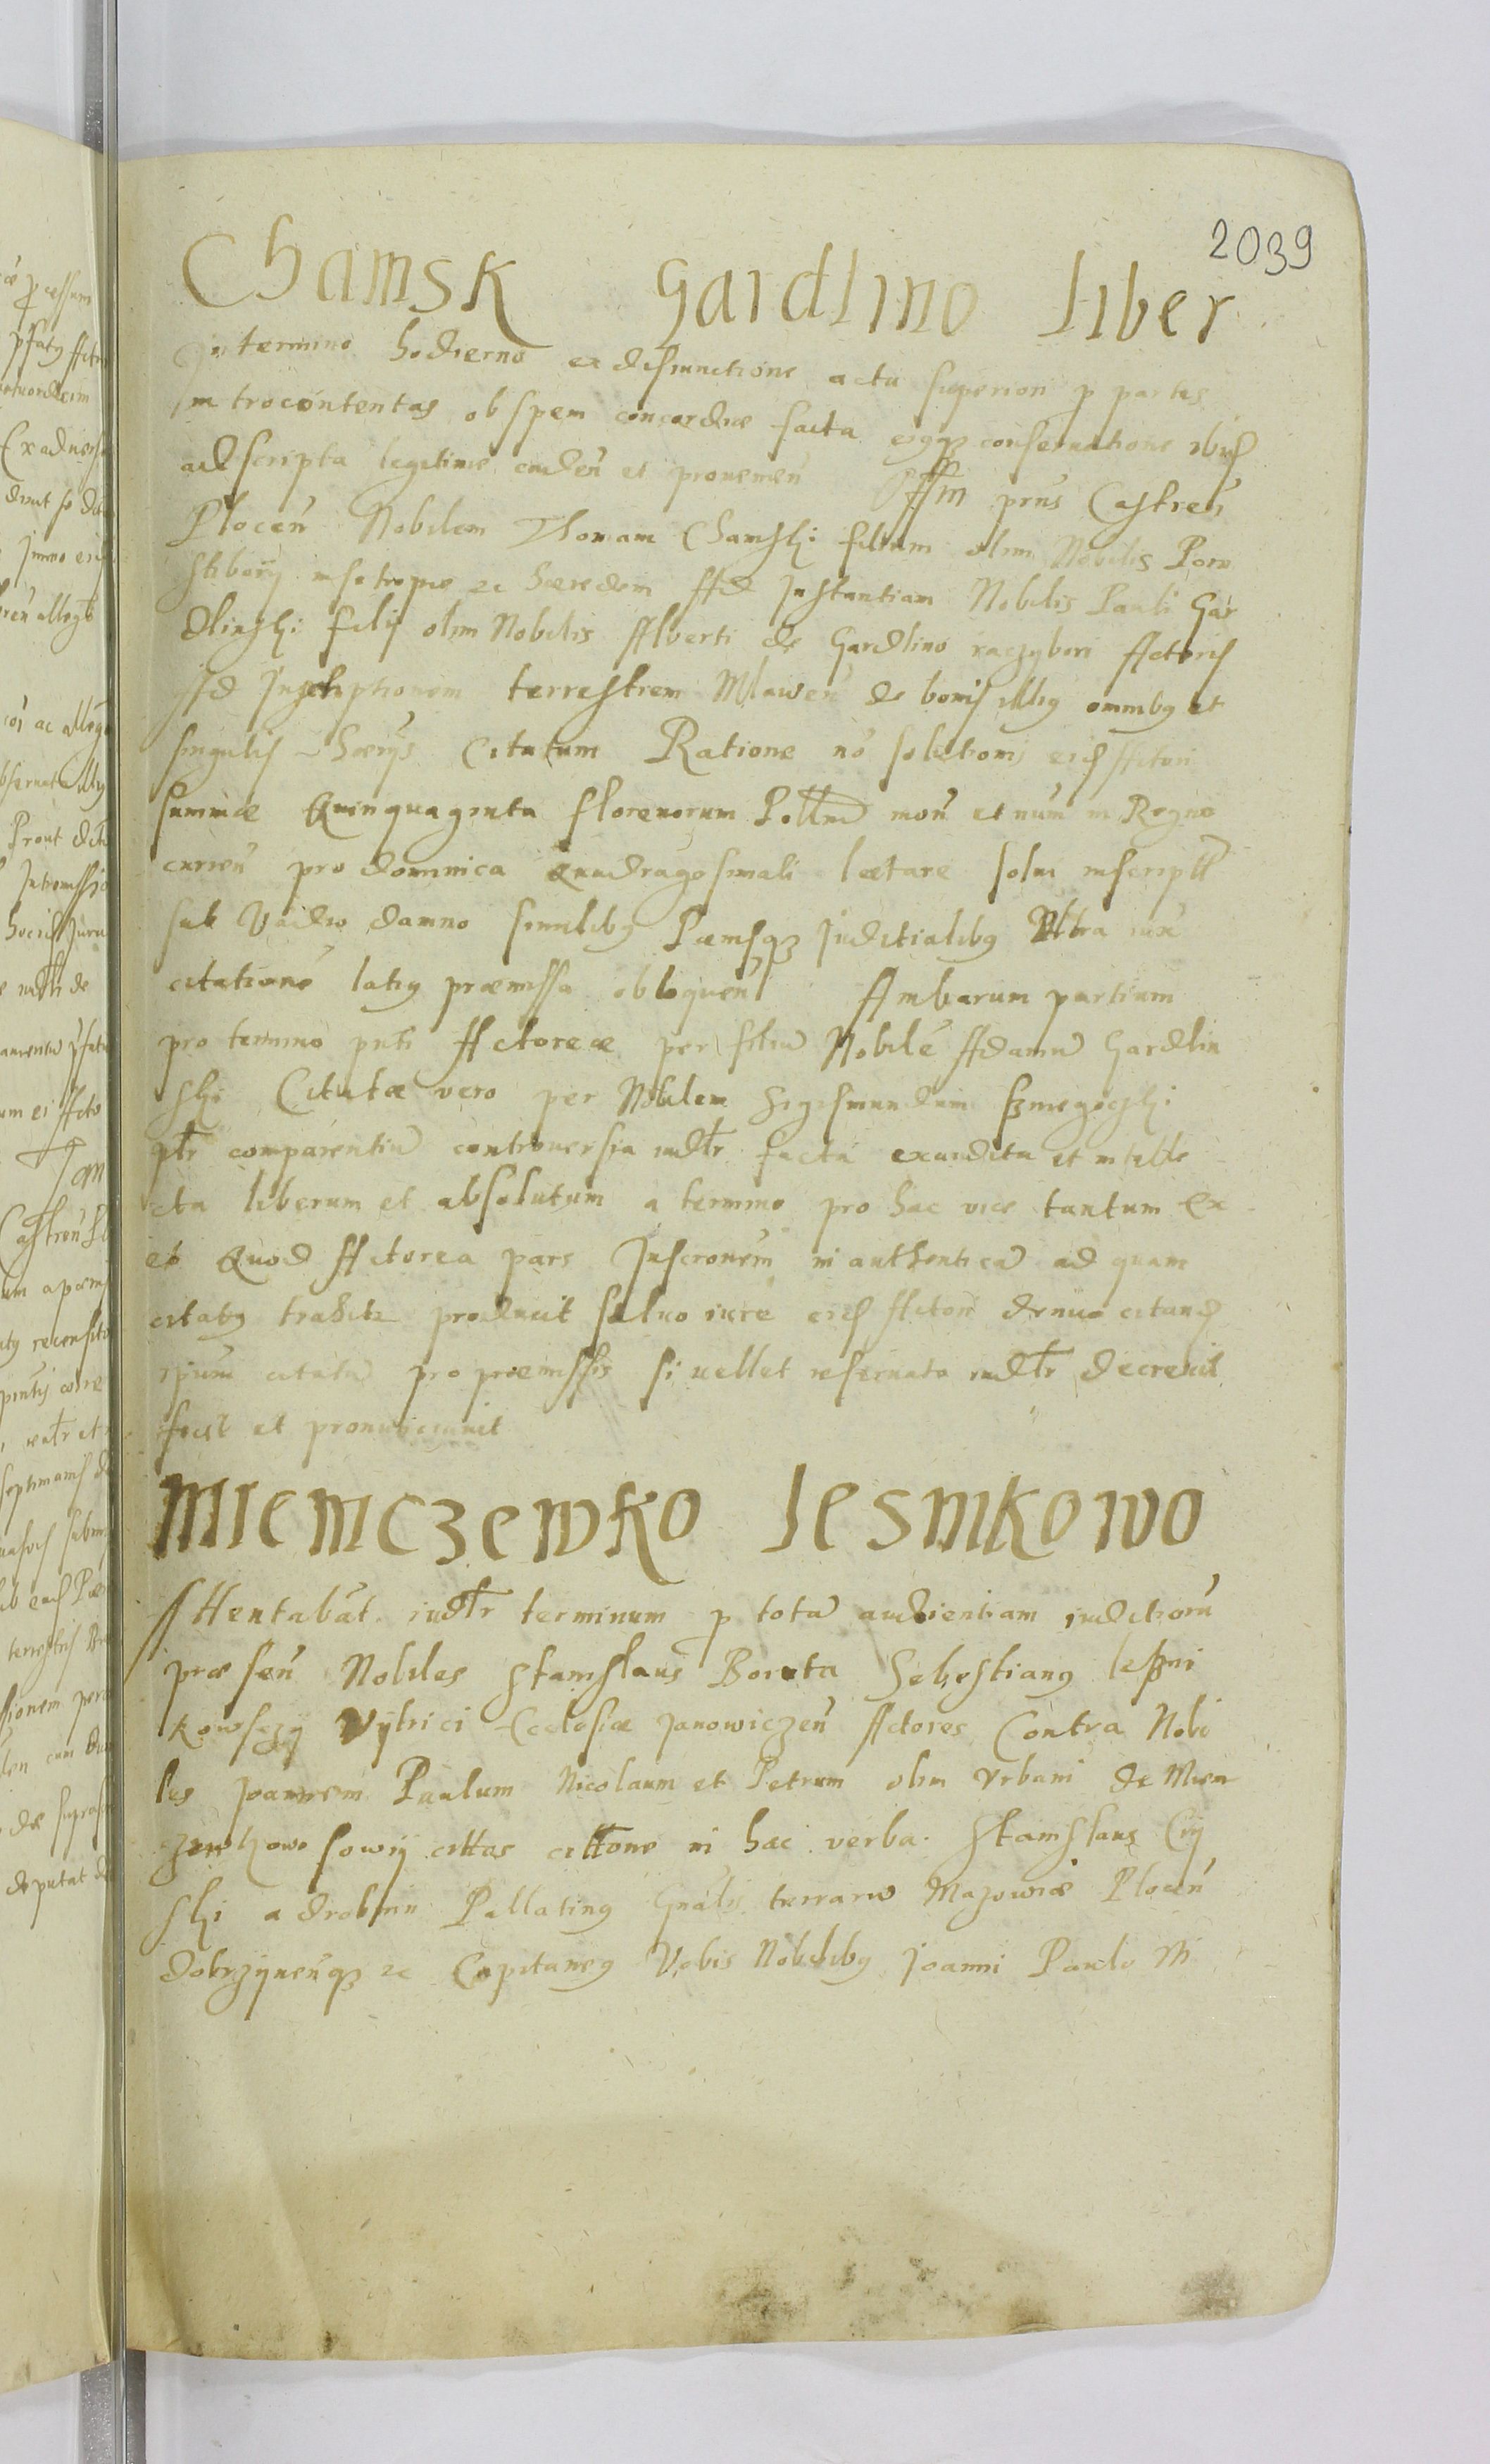 2039
Chamsk Gardlino liber
In termino hodierno ex disiunctione actu superiori p partes
introcontentas ob spem concordiae facta eiq3 conseruatione ibid
adscripta legitime caden et prouenien Offm prns Castren
Plocen Nobilem Thomam Chamski filium olim Nobilis
Stibory introque et haeredem Ad Instantiam Nobilis Pauli Gar
dlinski filij olim Nobilis Alberti de Gardlino raczybori Actoris
Ad Inscriptionem terrestrem Mlawen de bonis illig omnibg et
singulis Citatum Ratione no solutionis eid Actori
summae Quinquaginta florenorum Pollm mon et num in Regno
curren pro dominica Quadragesimali laetare solui inscript
sub Vadio damno similibg Paenisq3 Juditialibg Vltra iux
citatione latig praemissa obloquen Ambarum partium
pro termino pnti Actoreae per filiu Nobile Adamu Gardlin
ski Citatae vero per Nobilem Sigismundum
ptr comparentiu controuersia iudtr facta exaudita et intelle
cta liberum et absolutum a termino pro hac vice tantum Ex
eo Quod Actorea pars Inscronem in authentica ad quam
citatg trahitr producit saluo iure eid Actori denuo citand
ipsum citatu pro praemissis si uellet reseruato iudtr decreuit
fecit et pronunciauit
Miemczewko lesnikowo
Attentabat iudtr terminum p tota audientiam iuditioru
praesen Nobiles Stanislaus Boruta Sebestiang leßni
kowsczy Vytrici Ecclesiae Janowiczen Actores Contra Nobi
les Joannem Paulum Nicolaum et Petrum olim Vrbani de Miem
czewkowo sowiy cittas cittone in haec verba. Stanislaus Cry
ski a drobnin Pallating Gnalis terraru Mazowiae Plocen
dobrzynenq3 et Capitaneg Vobis Nobilibg Joanni Paulo Ni